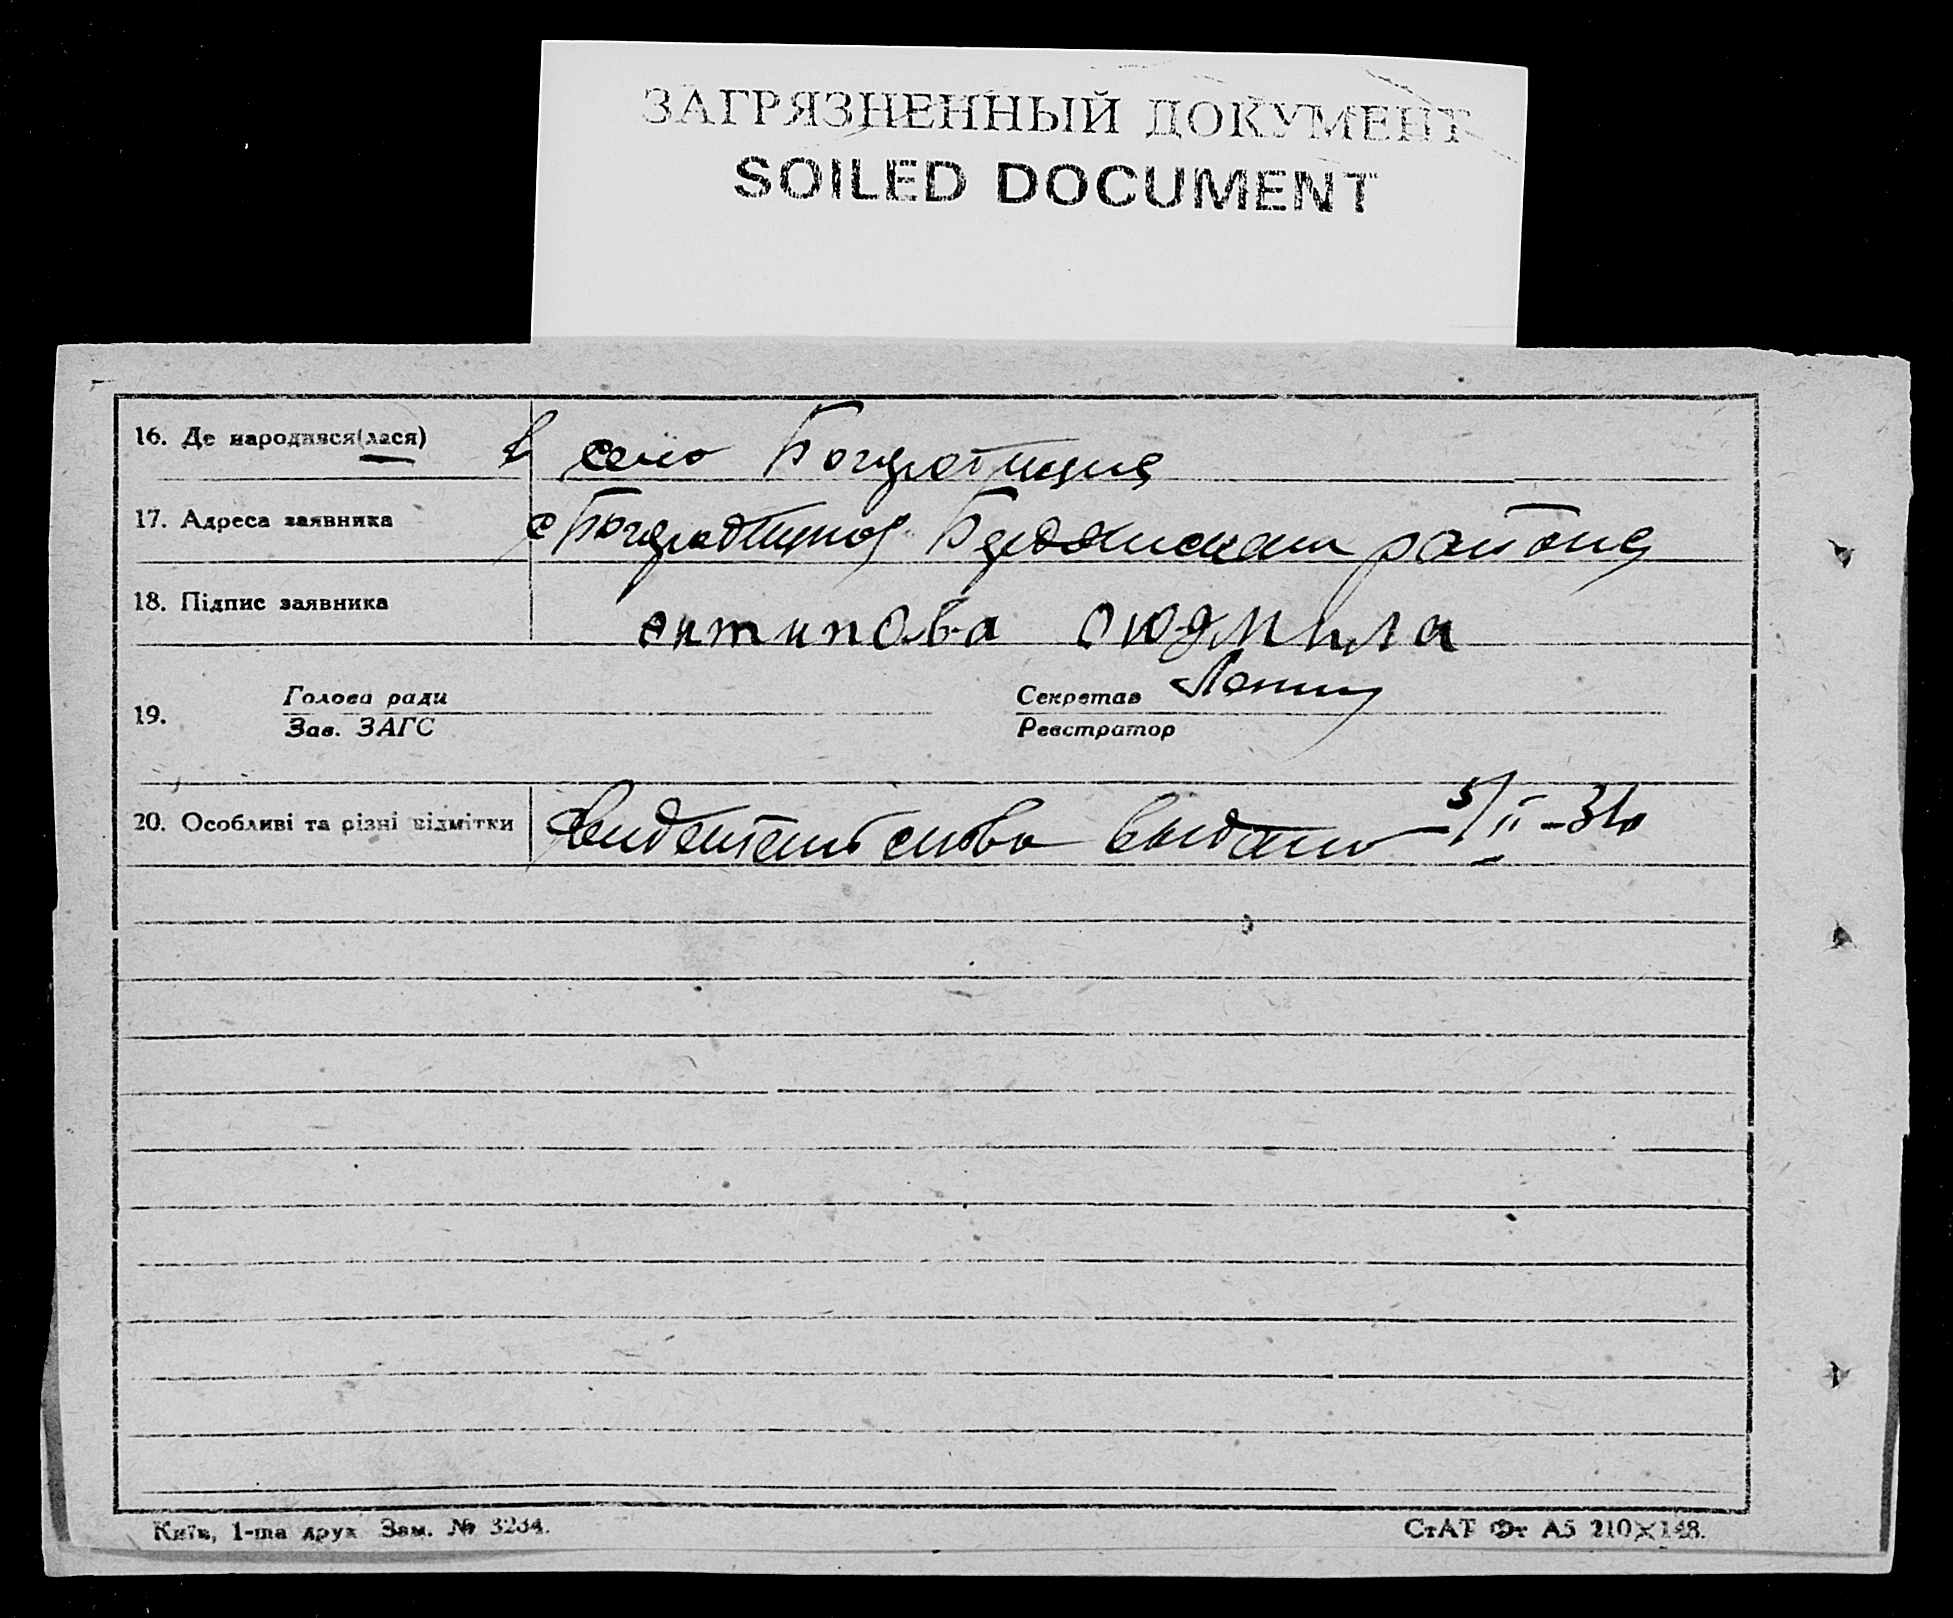 ЗАГРЯЗНЕННЫЙ ДОКУМЕНТ
SOILED DOCUMENT
16. Де народився(лася) в село
17. Адреса заявника с района
18. Підпис заявника антипова людмила
19. Голова ради Секретар
Зав. ЗАГС Реєстратор
20. Особливі та різні відмітки выдано 5/II-34
Київ, 1-ша друк Зам. № 3234.
СтАТ Фт А5 210×148.